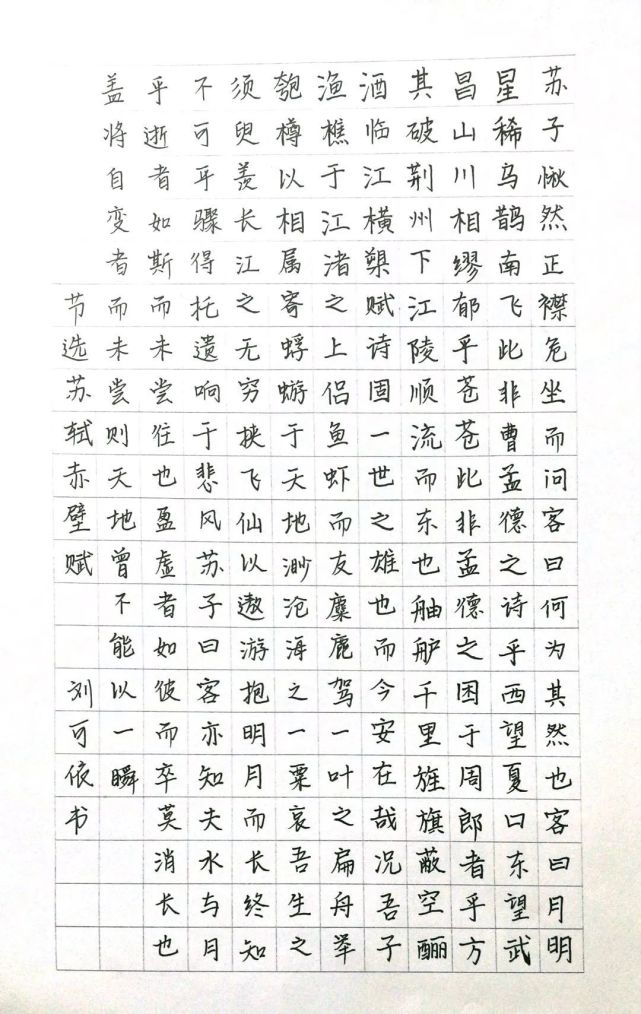 苏子愀然正襟危坐而问客曰何为其然也客曰月明
星稀乌鹊南飞此非曹孟德之诗乎西望夏口东望武
昌山川相缪郁乎苍苍此非孟德之困于周郎者乎方
其破荆州下江陵顺流而东也舳舻千里旌旗蔽空酾
酒临江横槊赋诗固一世之雄也而今安在哉况吾子
渔樵于江渚之上侣鱼虾而友麋鹿驾一叶之扁舟举
匏樽以相属寄蜉蝣于天地渺沧海之一粟哀吾生之
须臾羡长江之无穷挟飞仙以遨游抱明月而长终知
不可乎骤得托遗响于悲风苏子曰客亦知夫水与月
乎逝者如斯而未尝往也盈虚者如彼而卒莫消长也
盖将自变者而未尝则天地曾不能以一瞬
节选苏轼赤壁赋 刘可依书